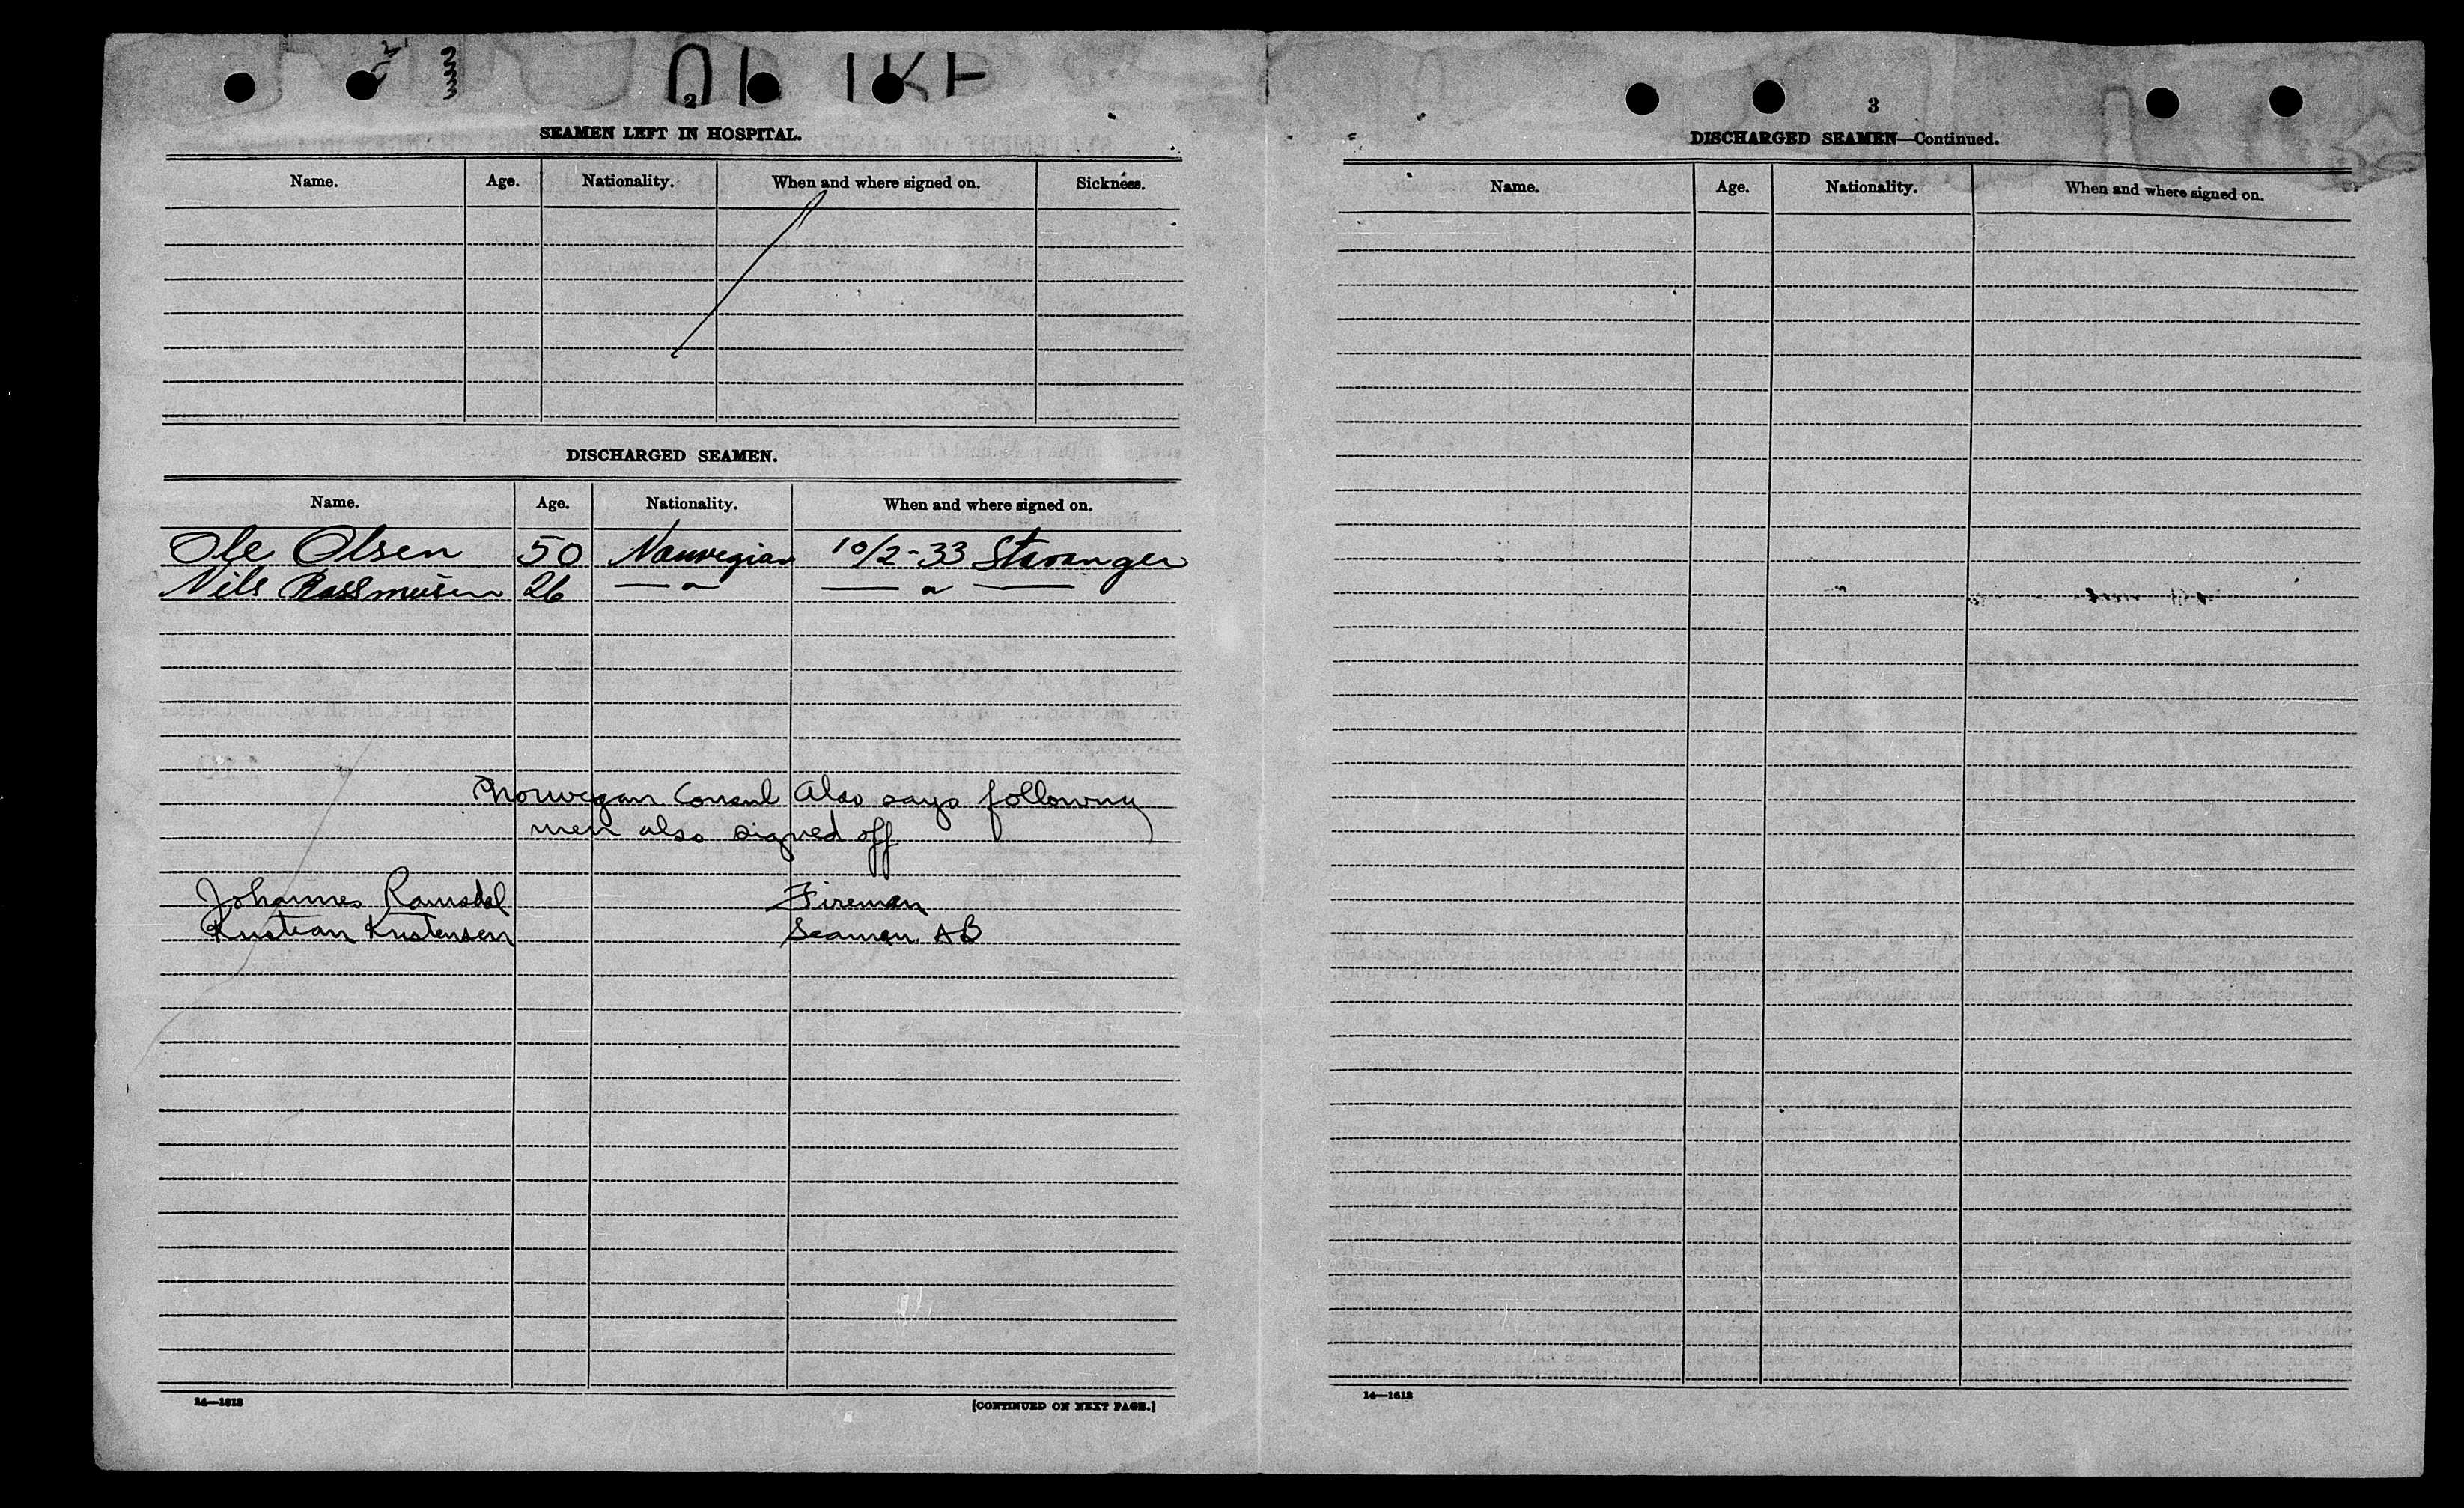 2
SEAMEN LEFT IN HOSPITAL.
Name. Age. Nationality. When and where signed on. Sickness.
DISCHARGED SEAMEN.
Name. Age. Nationality. When and where signed on.
Ole Olsen 50 Norwegian 10/2-33 Stavanger
Nils Rassmusen 26 — " — — " —
Norwegan Consul Also says following
men also signed off
Johannes Ramsdal Fireman
Kristian Kristensen Seaman AB
14—1613
[CONTINUED ON NEXT PAGE.]
3
DISCHARGED SEAMEN—Continued.
Name. Age. Nationality. When and where signed on.
14—1613